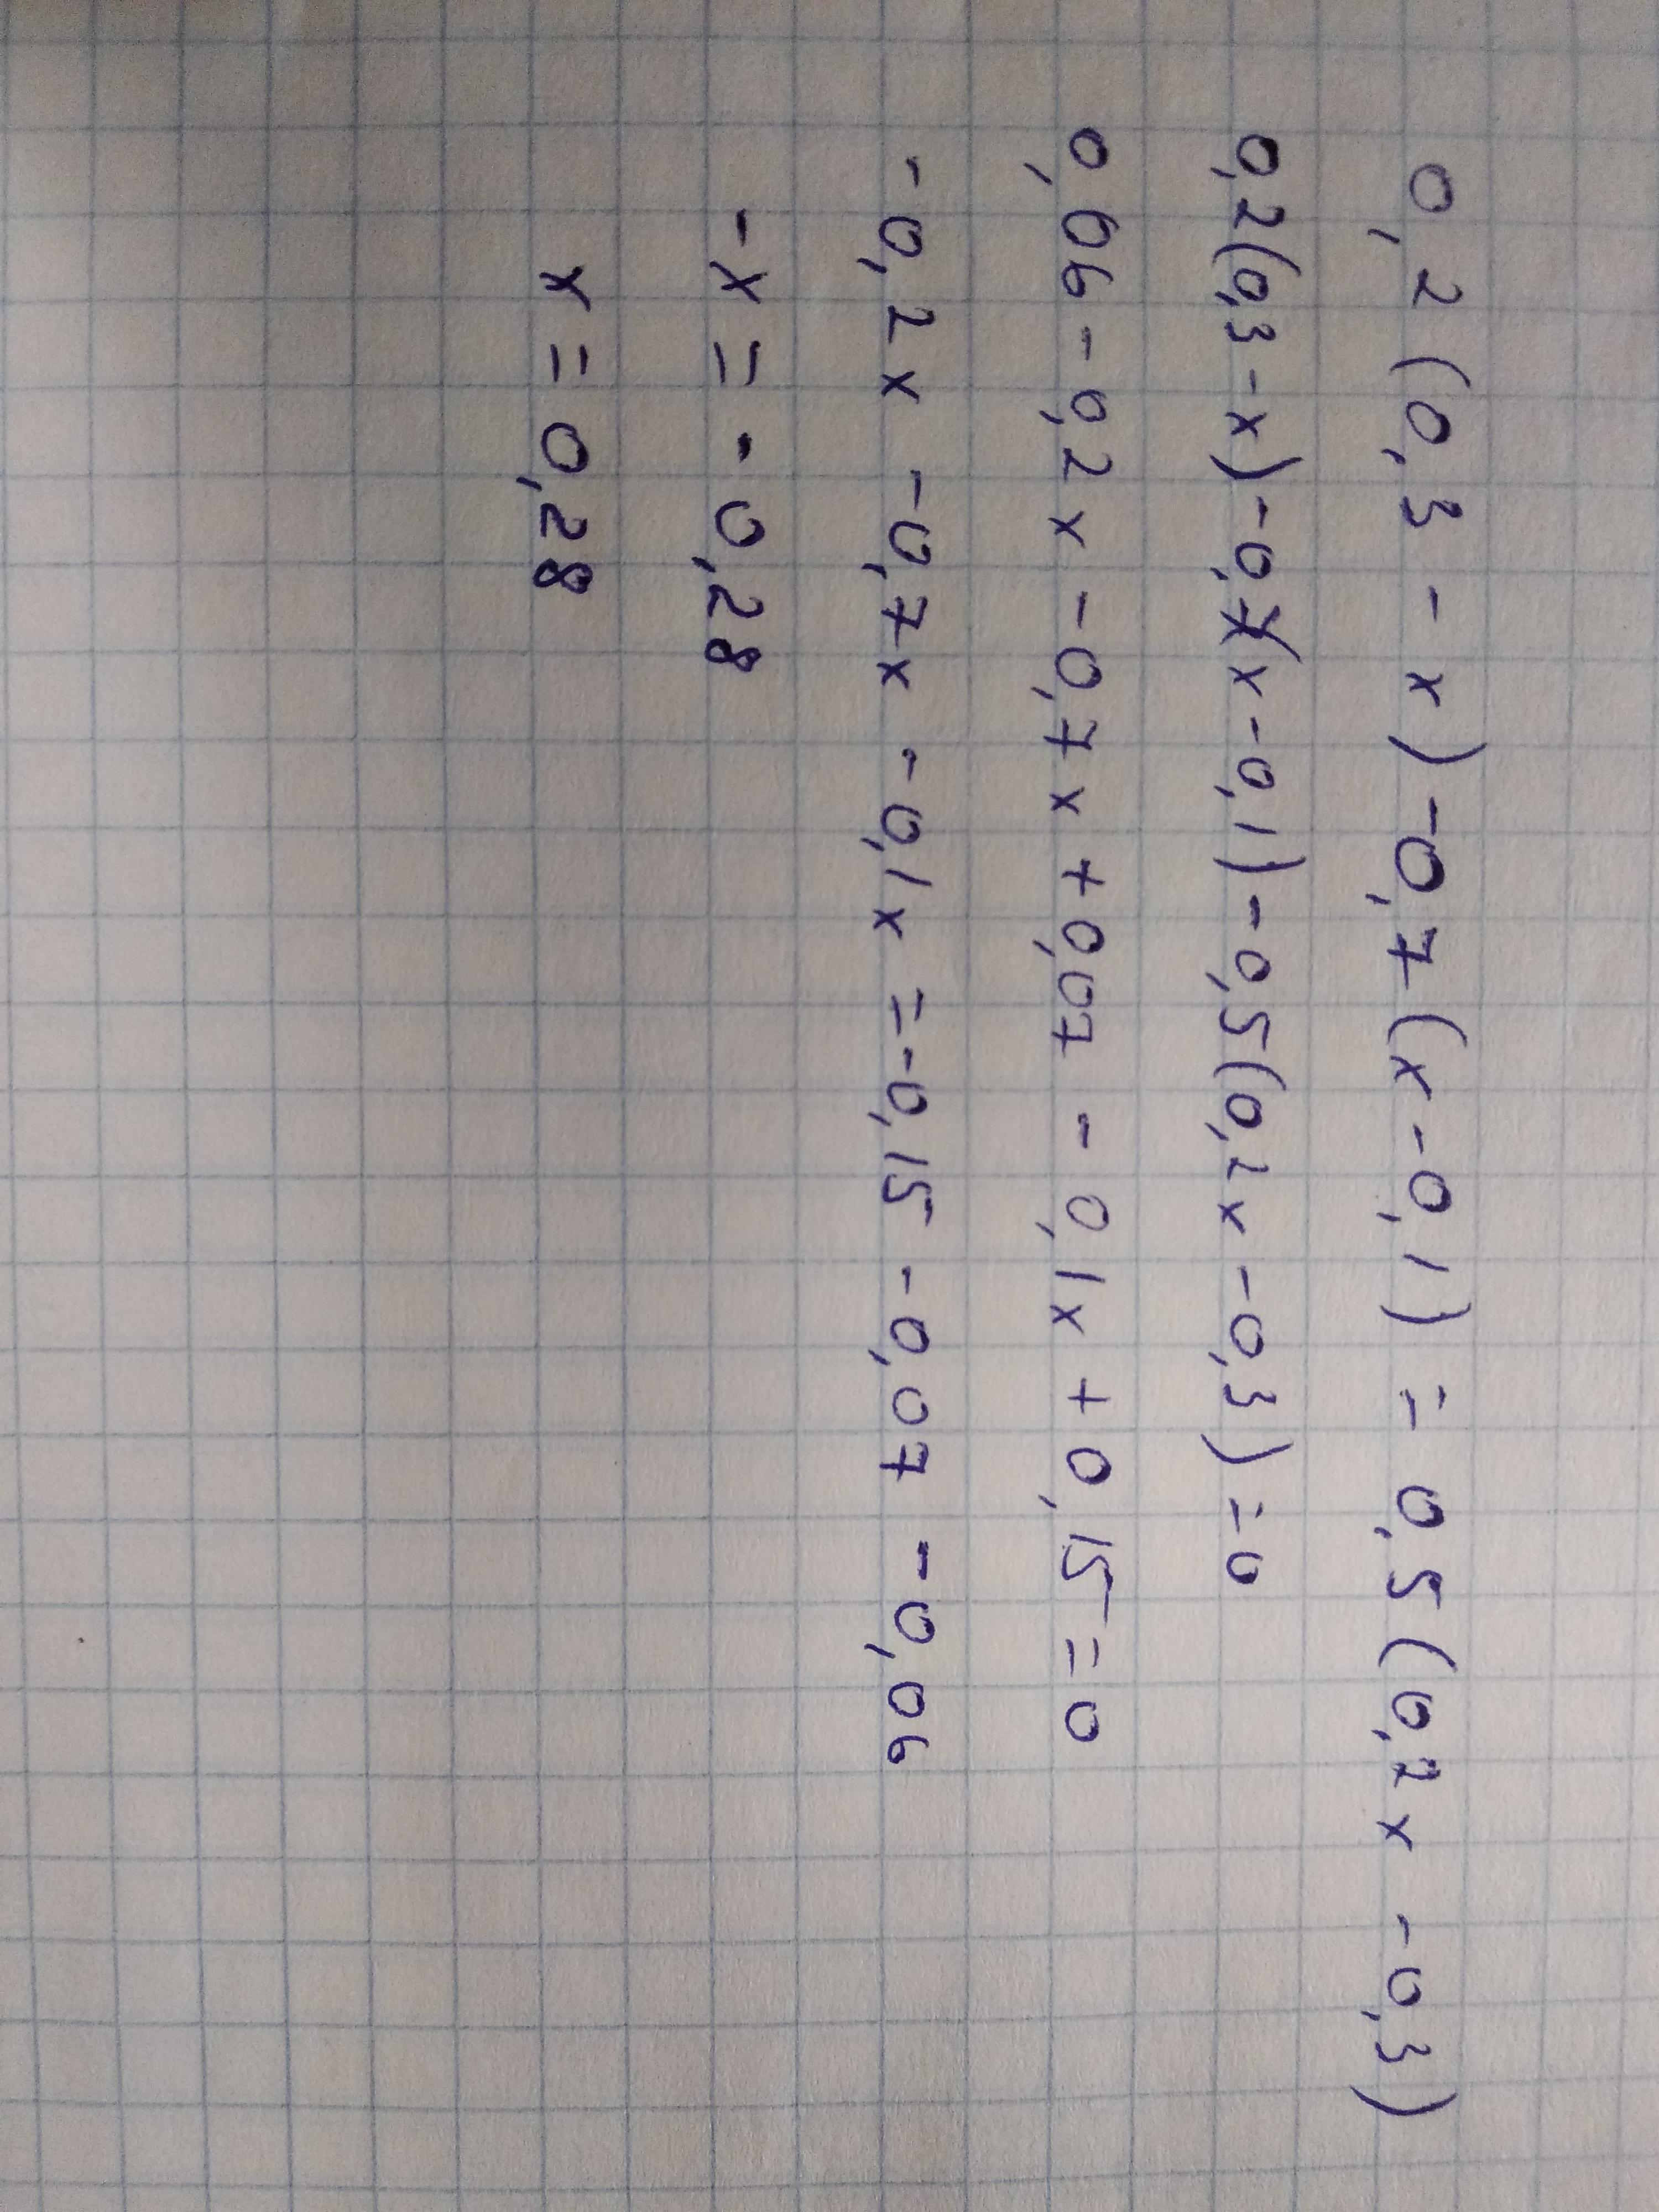 0,2(0,3 - x) - 0,7(x - 0,1) = 0,5(0,2x - 0,3)
0,2(0,3 - x) - 0,7(x - 0,1) - 0,5(0,2x - 0,3) = 0
0,06 - 0,2x - 0,7x + 0,07 - 0,1x + 0,15 = 0
- 0,2x - 0,7x - 0,1x = - 0,15 - 0,07 - 0,06
- x = - 0,28
x = 0,28